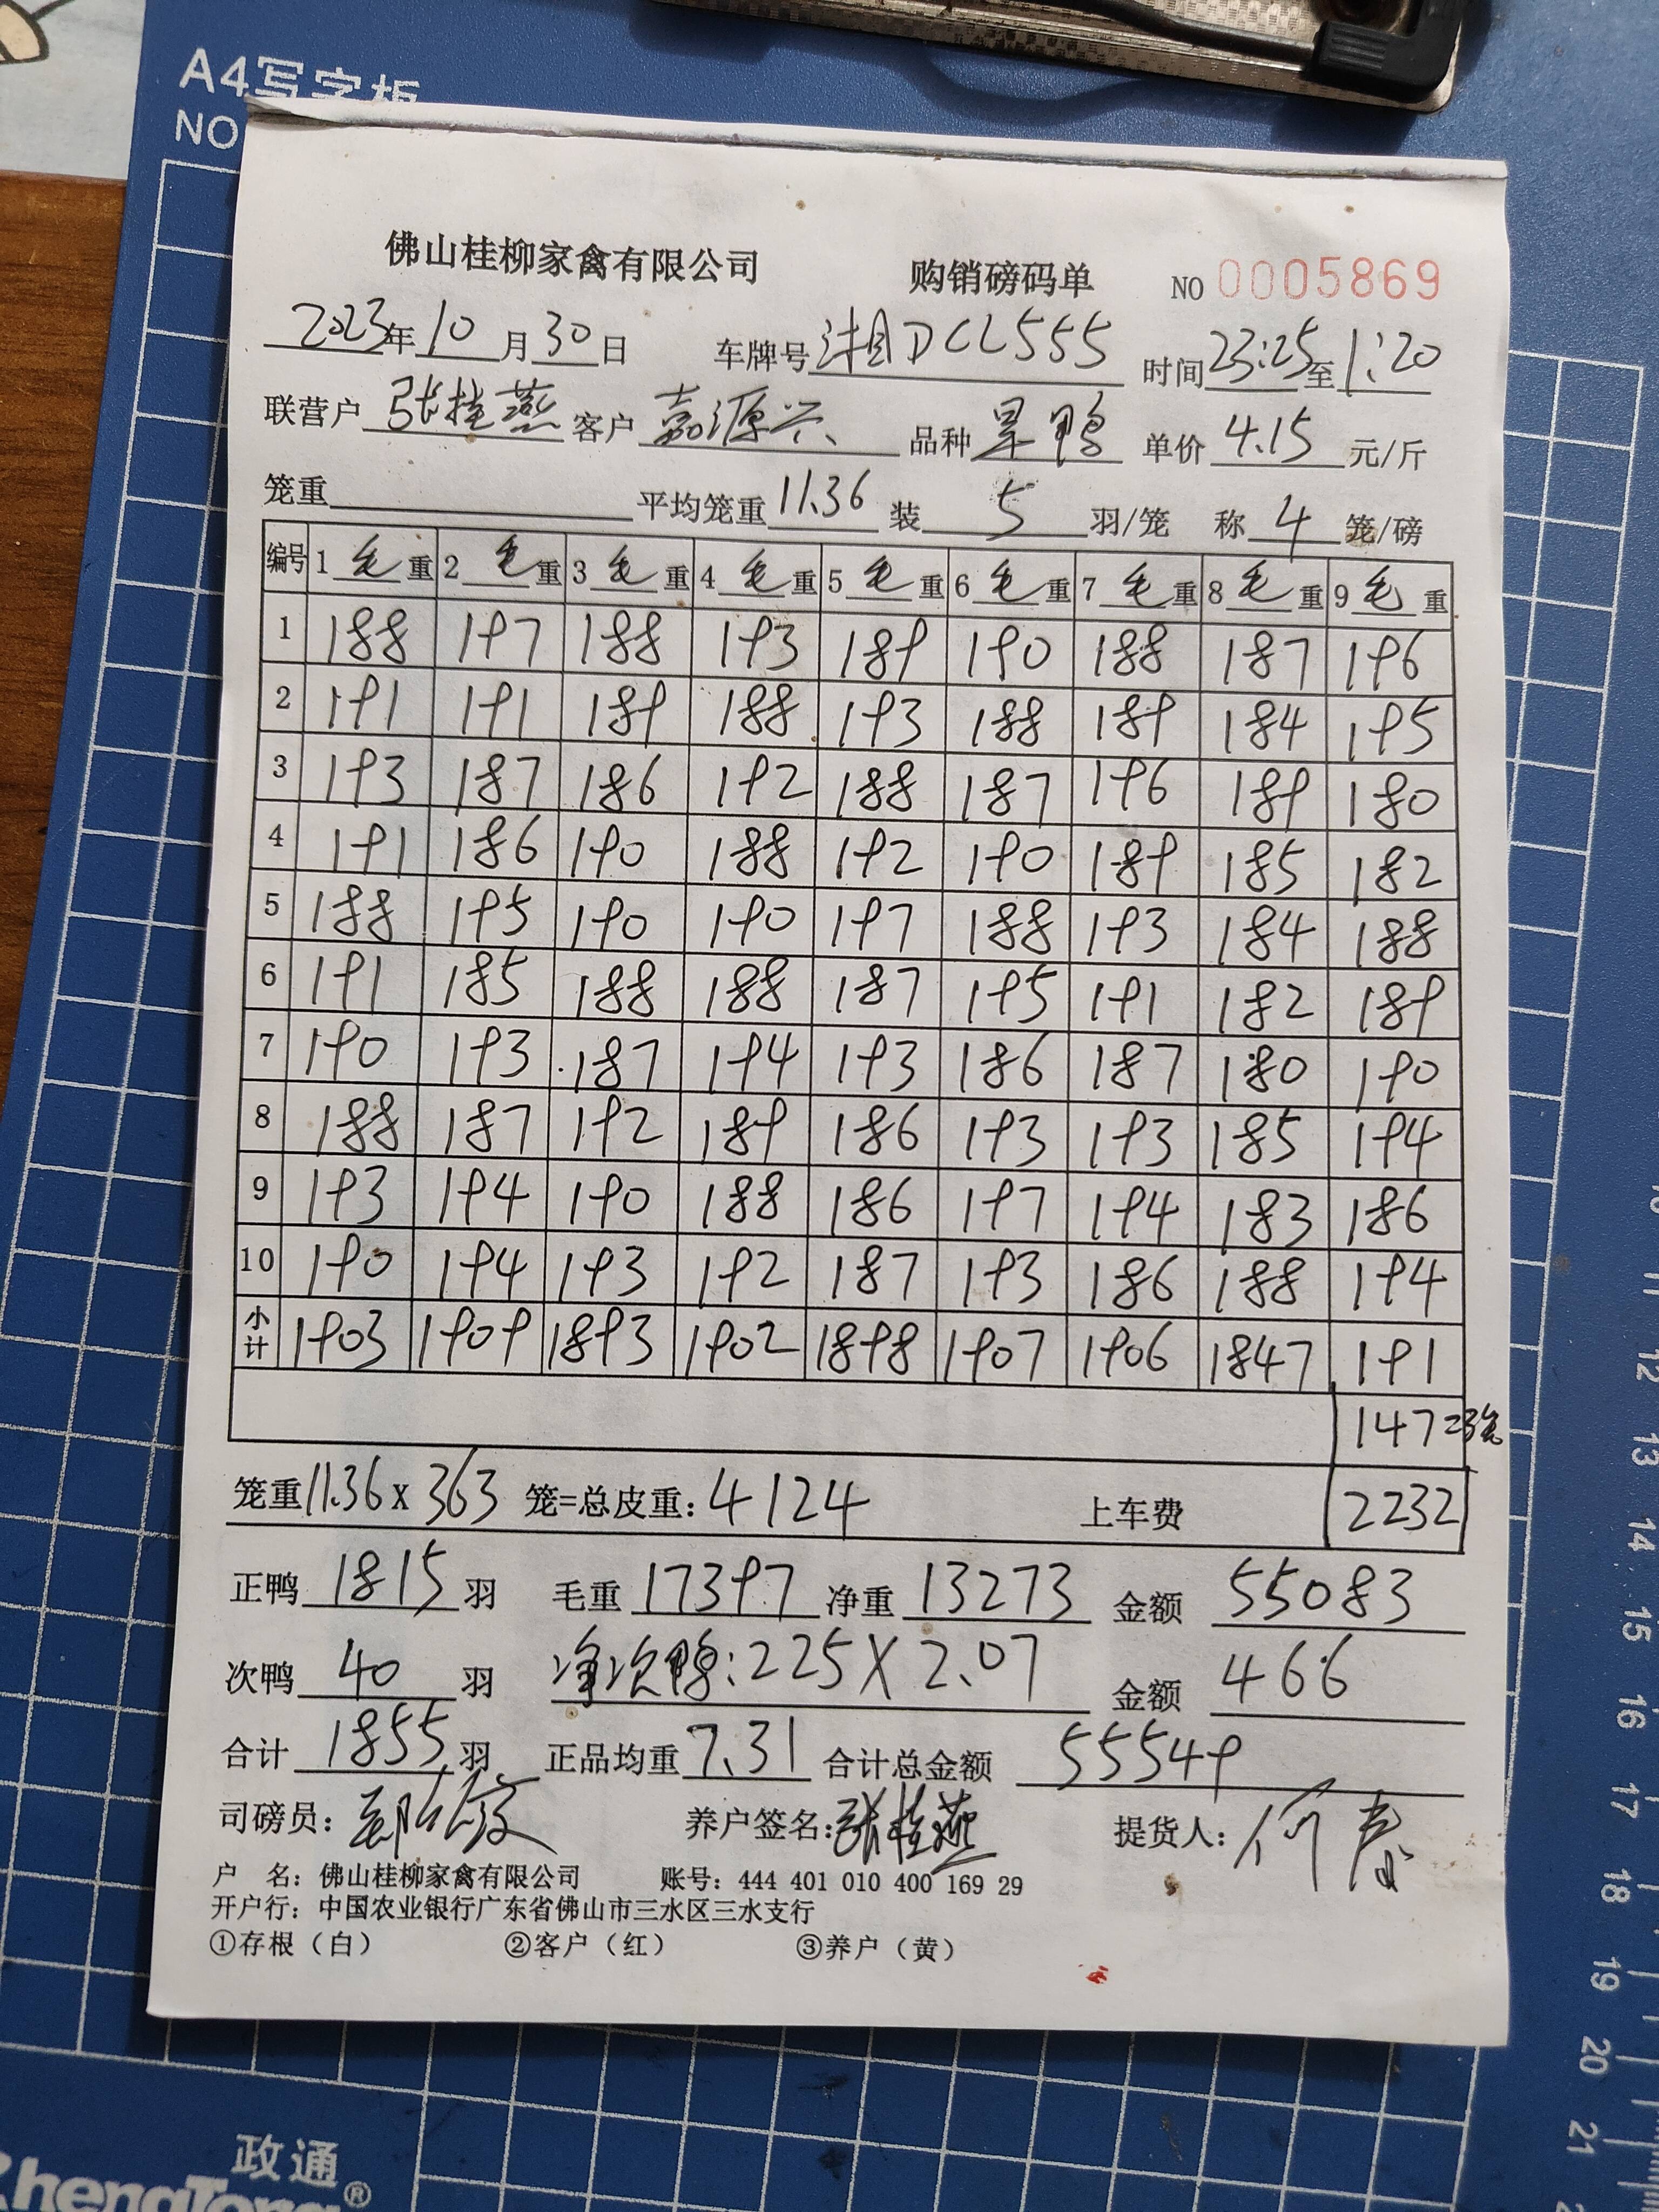 A4写字板
NO
佛山桂柳家禽有限公司 购销磅码单 NO 0005869
2023年10月30日 车牌号 湘DCL555 时间23:25至1:20
联营户 张桂燕 客户 嘉源兴 品种 旱鸭 单价 4.15 元/斤
笼重 平均笼重 11.36 装 5 羽/笼 称 4 笼/磅
编号 1 毛 重 2 毛 重 3 毛 重 4 毛 重 5 毛 重 6 毛 重 7 毛 重 8 毛 重 9 毛 重
1 188 197 188 193 189 190 188 187 196
2 191 191 189 188 193 188 189 184 195
3 193 187 186 192 188 187 196 189 180
4 191 186 190 188 192 190 189 185 182
5 188 195 190 190 197 188 193 184 188
6 191 185 188 188 187 195 191 182 189
7 190 193 187 194 193 186 187 180 190
8 188 187 192 189 186 193 193 185 194
9 193 194 190 188 186 197 194 183 186
10 190 194 193 192 187 193 186 188 194
小计 1903 1909 1893 1902 1898 1907 1906 1847 191
147=3笼
笼重11.36x 363 笼=总皮重:4124 上车费 2232
正鸭 1815 羽 毛重 17397 净重 13273 金额 55083
次鸭 40 羽 净次鸭:225X2.07 金额 466
合计 1855 羽 正品均重 7.31 合计总金额 55549
司磅员: 养户签名:张桂燕 提货人:何春
户 名: 佛山桂柳家禽有限公司 账号: 444 401 010 400 169 29
开户行: 中国农业银行广东省佛山市三水区三水支行
①存根(白) ②客户(红) ③养户(黄)
11
12
13
14
15
16
17
18
19
20
21
政通
ZhengTong®